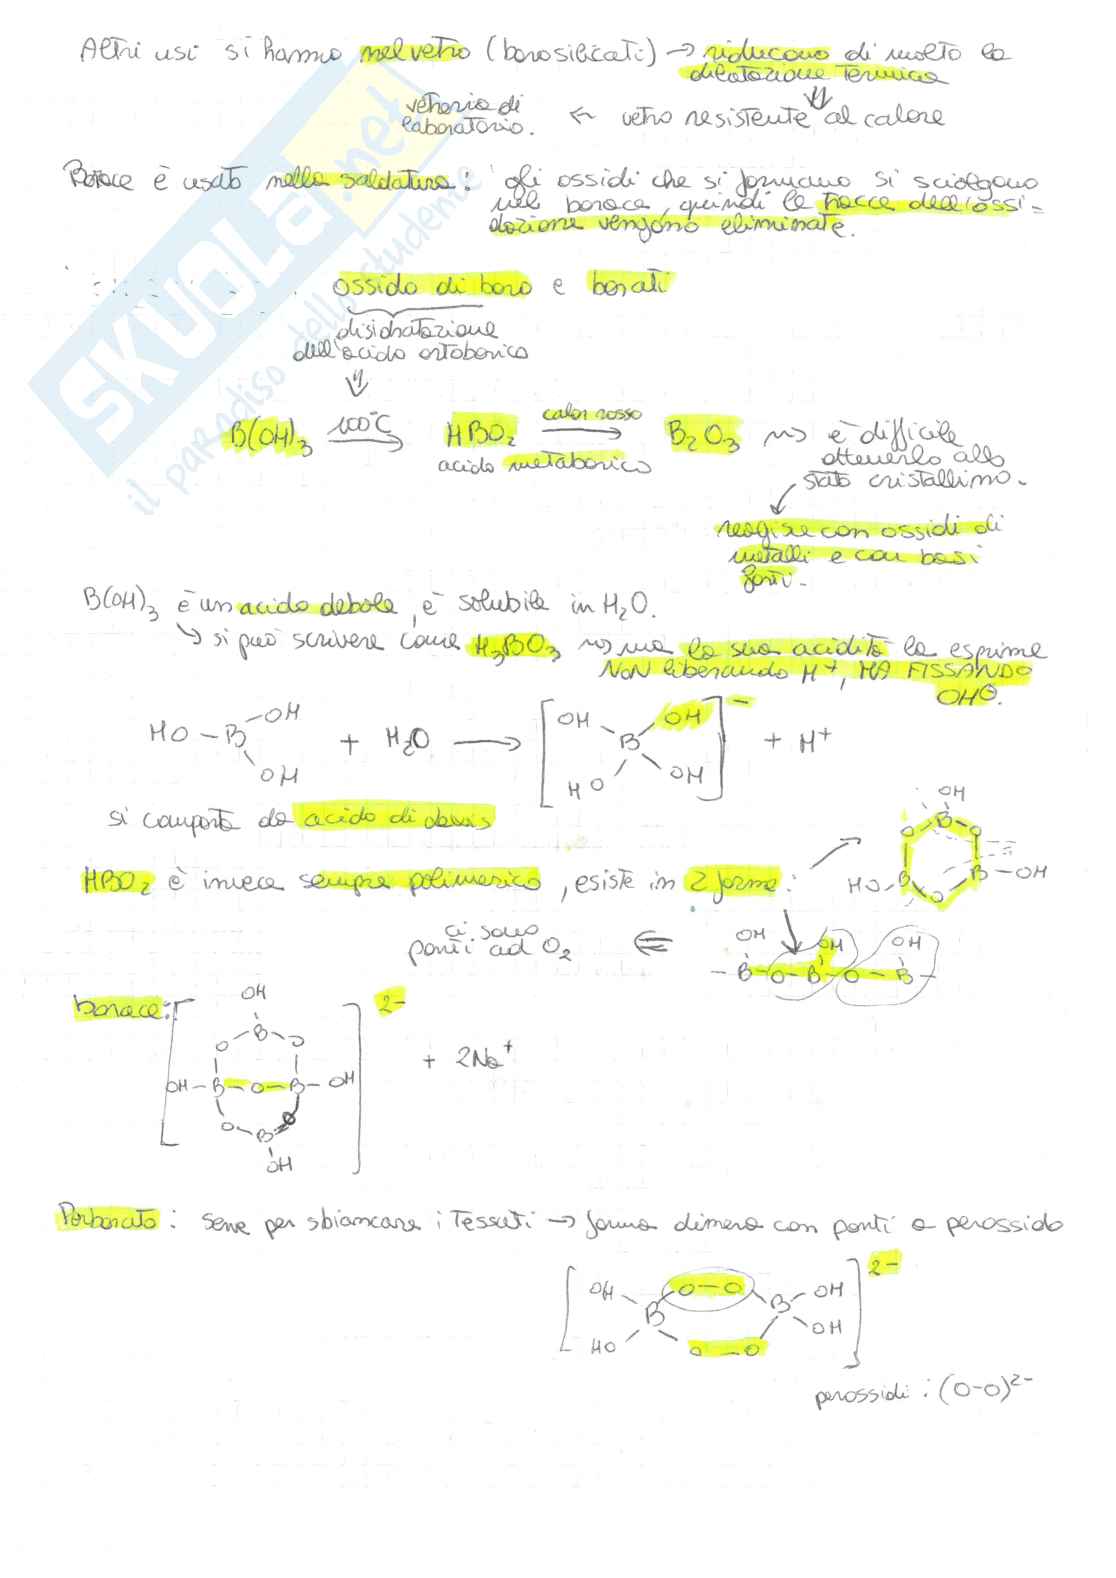 Altri usi si hanno nel vetro (borosilicati) → riducono di molto la
dilatazione termica
⇓
vetreria di
laboratorio. ← vetro resistente al calore
Borace è usato nella saldatura: gli ossidi che si formano si sciolgono
nel borace, quindi le tracce dell'ossi-
dazione vengono eliminate.
ossido di boro e borati
disidratazione
dell'acido ortoborico
⇓
B(OH)3 100°C → HBO2 calor rosso → B2O3 ⇝ è difficile
acido metaborico
ottenerlo allo
stato cristallino.
reagisce con ossidi di
metalli e con basi
forti.
B(OH)3 è un acido debole, è solubile in H2O.
↳ si può scrivere come H3BO3 ⇝ ma la sua acidità la esprime
NON liberando H+, MA FISSANDO
OH⊖.
HO – B OH OH + H2O → [ OH OH B HO OH ]– + H+
si comporta da acido di Lewis
OH
B
O O
HBO2 è invece sempre polimerico, esiste in 2 forme:
HO B B OH
O
ci sono
ponti ad O2 ⇐
OH OH OH
– B – O – B – O – B –
borace: [ ]2–
OH
B
O O
+ 2Na+
OH – B – O – B – OH
O O
B
OH
Perborato: serve per sbiancare i tessuti → forma dimero con ponti a perossido
[ ]2–
OH O – O OH
B B
HO O – O OH
perossidi: (O-O)2–
SKUOLA.net
il paradiso dello studente